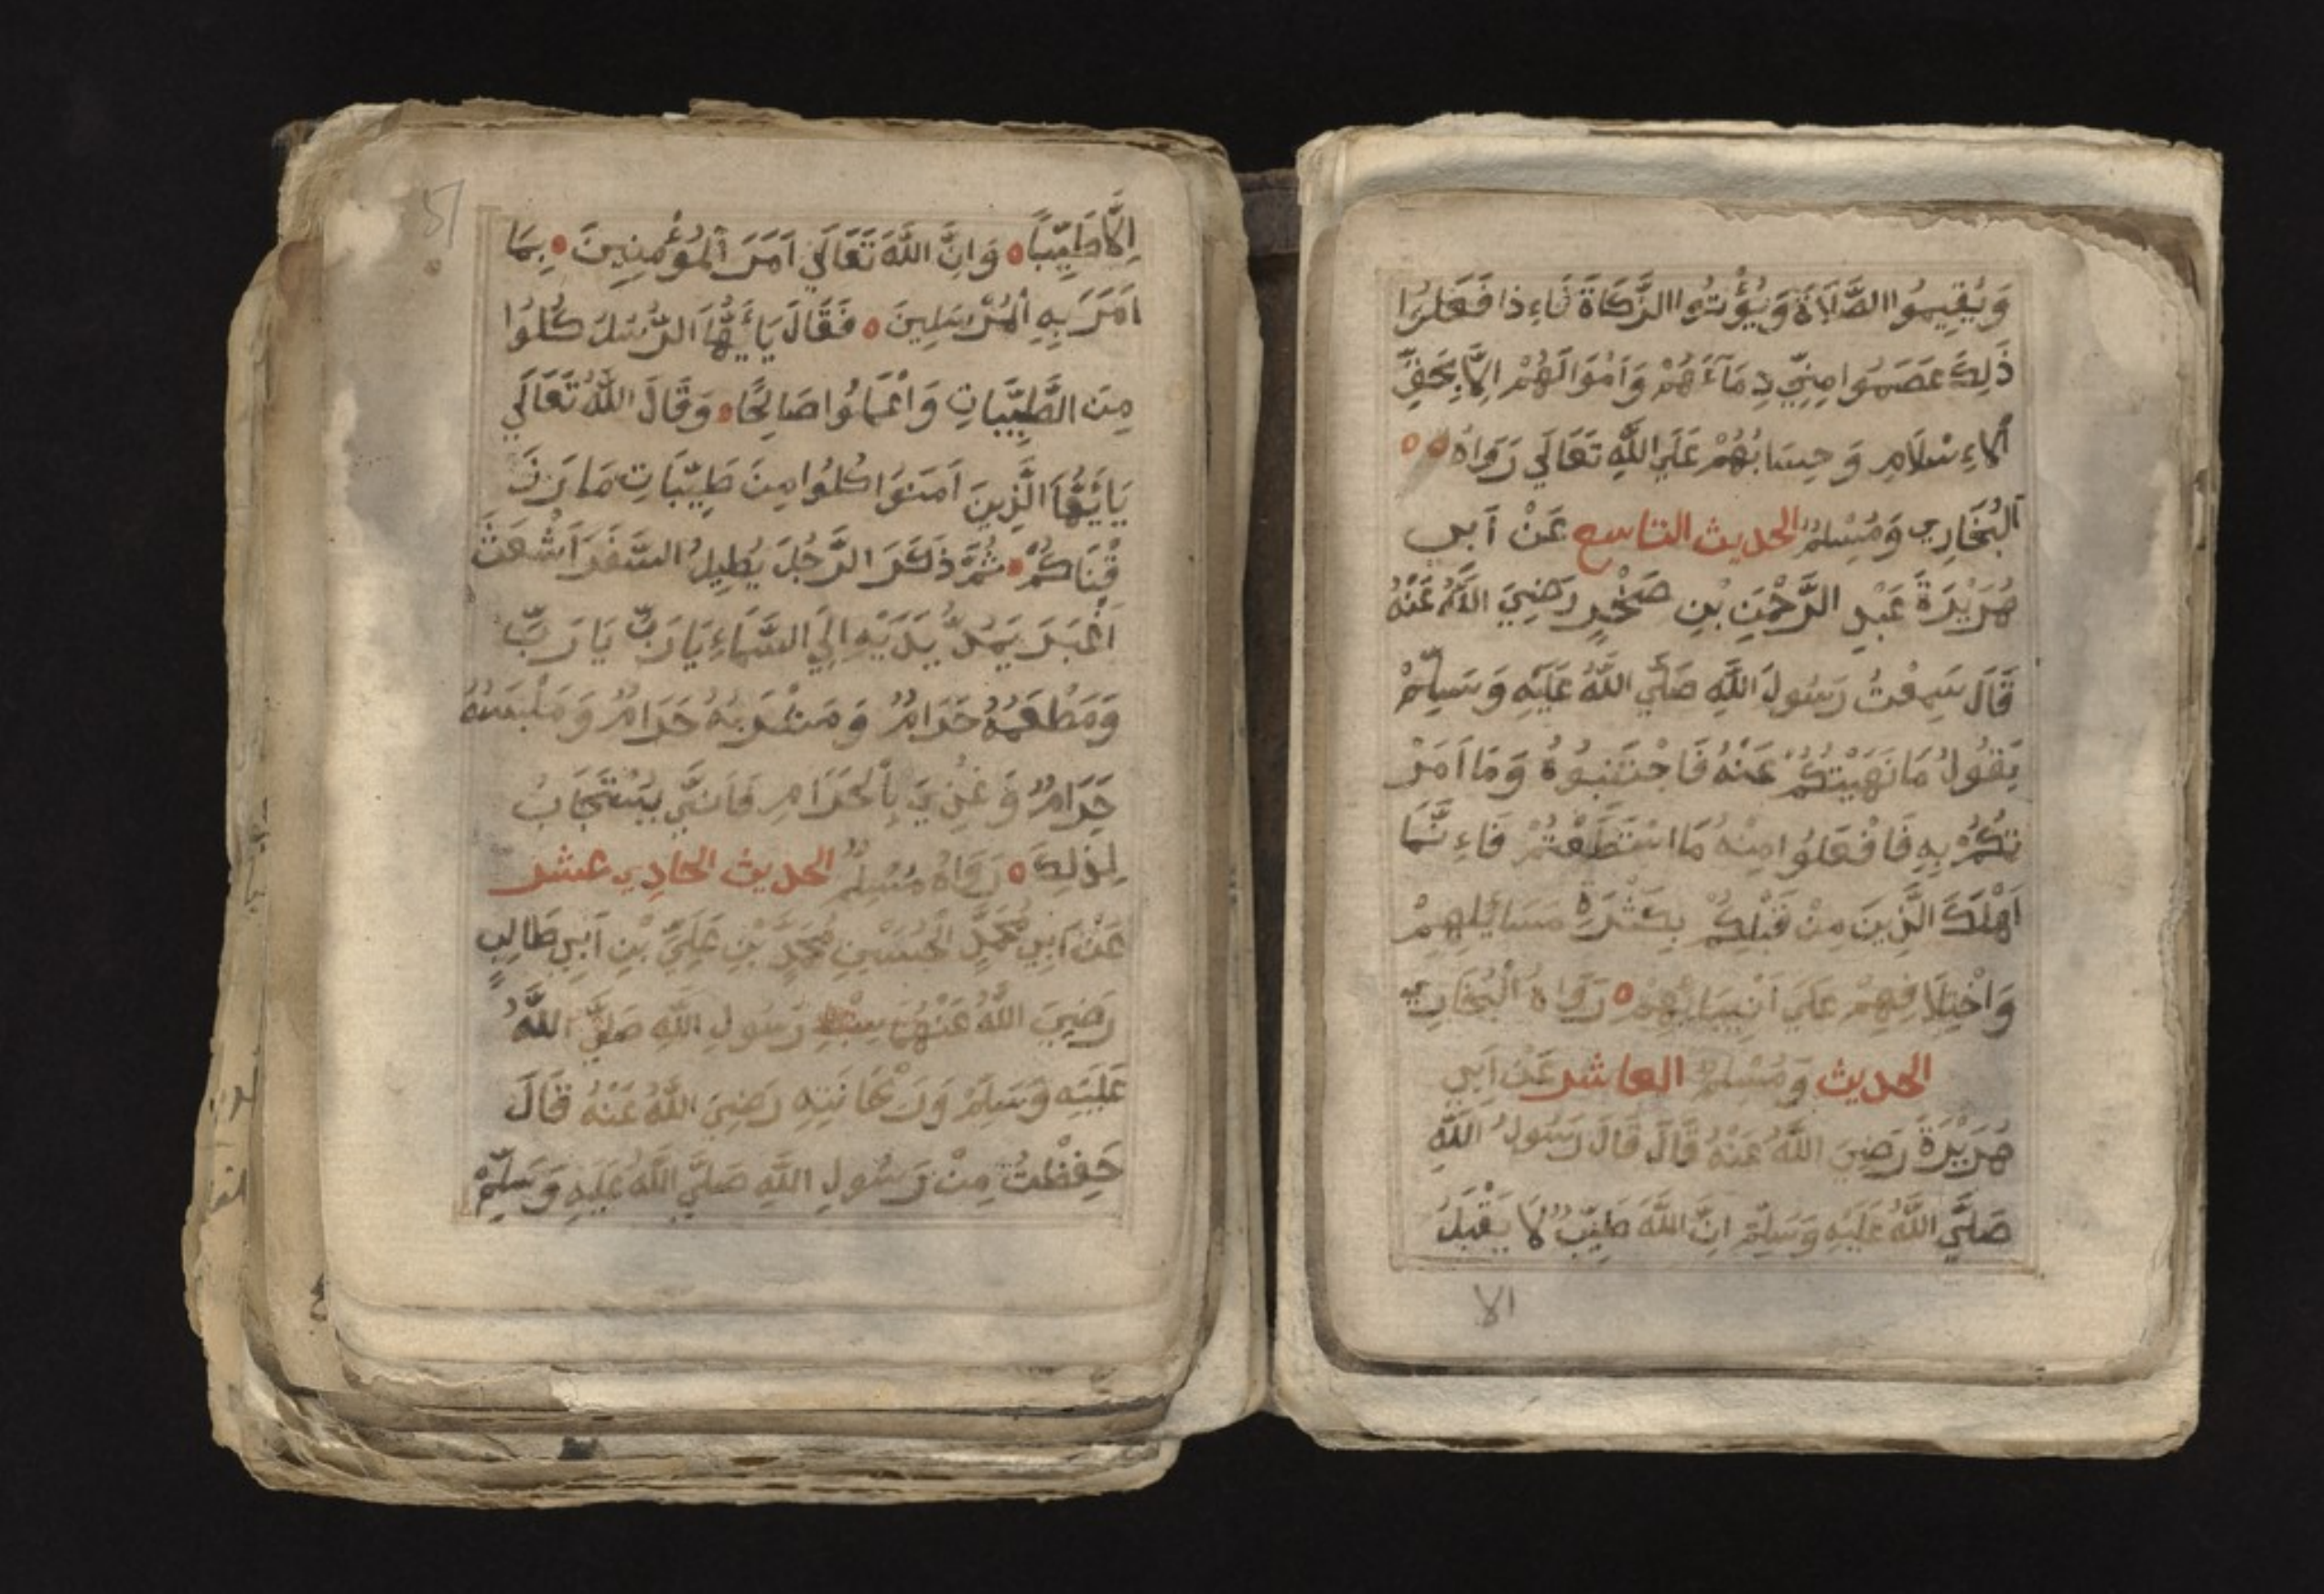 وَيُقِيمُوا الصَّلَاةَ وَيُؤْتُوا الزَّكَاةَ فَاءِذا فَعَلُوا
ذَلِكَ عَصَمُوا مِنِّي دِمَآءَهُمْ وَاَمْوَالَهُمْ اِلَّا بِحَقِّ
اْلاءِسْلَامِ وَحِسَابُهُمْ عَلَي اللَّهِ تَعَالَي رَوَاهُ
اَلْبُخَارِي وَمُسْلِمٌ الحديث التاسع عَنْ اَبِي
هُرَيْرَةَ عَبْدِ الرَّحْمَنِ بْنِ صَخْرٍ رَضِيَ اللَّهُ عَنْهُ
قَالَ سَمِعْتُ رَسُولَ اللَّهِ صَلَّي اللَّهُ عَلَيْهِ وَسَلَّمْ
يَقُولُ مَا نَهَيْتُكُمْ عَنْهُ فَاجْتَنِبُوهُ وَمَا اَمَرْ
تُكُمْ بِهِ فَافْعَلُوا مِنْهُ مَا اسْتَطَعْتُمْ فَاءِنَّمَا
اَهْلَكَ الَّذِينَ مِنْ قَبْلِكُمْ بِكَثْرَةِ مَسَائِلِهِمْ
وَاخْتِلَافِهِمْ عَلَي اَنْبِيَائِهِمْ رَوَاهُ الْبُخَارِي
الحديث وَمُسْلِمٌ العاشر عَنْ اَبِي
هُرَيْرَةَ رَضِيَ اللَّهُ عَنْهُ قَالَ قَالَ رَسُولُ اللَّهِ
صَلَّي اللَّهُ عَلَيْهِ وَسَلَّمْ اِنَّ اللَّهَ طَيِّبٌ لَا يَقْبَلُ
الا
اِلَّا طَيِّبًا وَاِنَّ اللَّهَ تَعَالَي اَمَرَ اَلْمُؤْمِنِينَ بِمَا
اَمَرَ بِهِ اْلمُرْسَلِينَ فَقَالَ يَا أَيُّهَا الرُّسُلُ كُلُوا
مِنَ الطَّيِّبَاتِ وَاعْمَلُوا صَالِحًا وَقَالَ اللَّهُ تَعَالَي
يَا أَيُّهَا الَّذِينَ اَمَنُوا كُلُوا مِنَ طَيِّبَاتِ مَا رَزَ
قْنَاكُمْ ثُمَّ ذَكَرَ الرَّجُلَ يُطِيلُ السَّفَرَ اَشْعَثَ
اَغْبَرَ يَمُدُّ يَدَيْهِ اِلَي السَّمَاءِ يَا رَبِّ يَا رَبِّ
وَمَطْعَمُهُ حَرَامٌ وَمَشْرَبُهُ حَرَامٌ وَمَلْبَسُهُ
حَرَامٌ وَغُذِيَ بِالْحَرَامِ فَاَنَّي يُسْتَجَابُ
لِذَلِكَ رَوَاهُ مُسْلِمٌ الحديث الحادِي عشر
عَنْ اَبِي مُحَمَّدٍ الْحَسَنِ مُحَمَّدٍ بْنِ عَلِيِّ بْنِ اَبِي طَالِبٍ
رَضِيَ اللَّهُ عَنْهُمَا سِبْطِ رَسُولِ اللَّهِ صَلَّي اللَّهُ
عَلَيْهِ وَسَلَّمَ وَرَيْحَانَتِهِ رَضِيَ اللَّهُ عَنْهُ قَالَ
حَفِظْتُ مِنْ رَسُولِ اللَّهِ صَلَّي اللَّهُ عَلَيْهِ وَسَلَّمْ